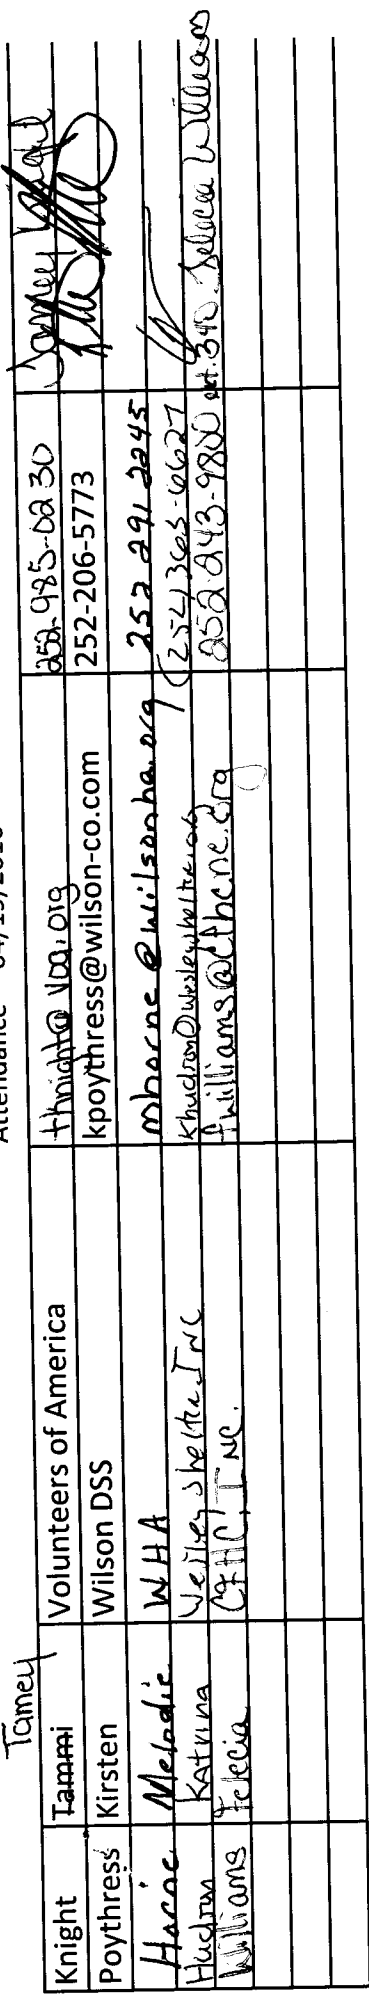 Attendance 04/19/2016
Tamey
Knight Tammi Volunteers of America tknight@voa.org 252-985-0230 Tamey Knight
Poythress Kirsten Wilson DSS kpoythress@wilson-co.com 252-206-5773
Horne Melodie WHA mhorne@wilsonha.org 252 291 2245
Hudson Katrina Wesley Shelter INC khudson@wesleyshelter.org (252) 363-6627
Williams Felecia CFHC, INC. fwilliams@cfhcnc.org 252-243-9800 ext. 340 Felecia Williams